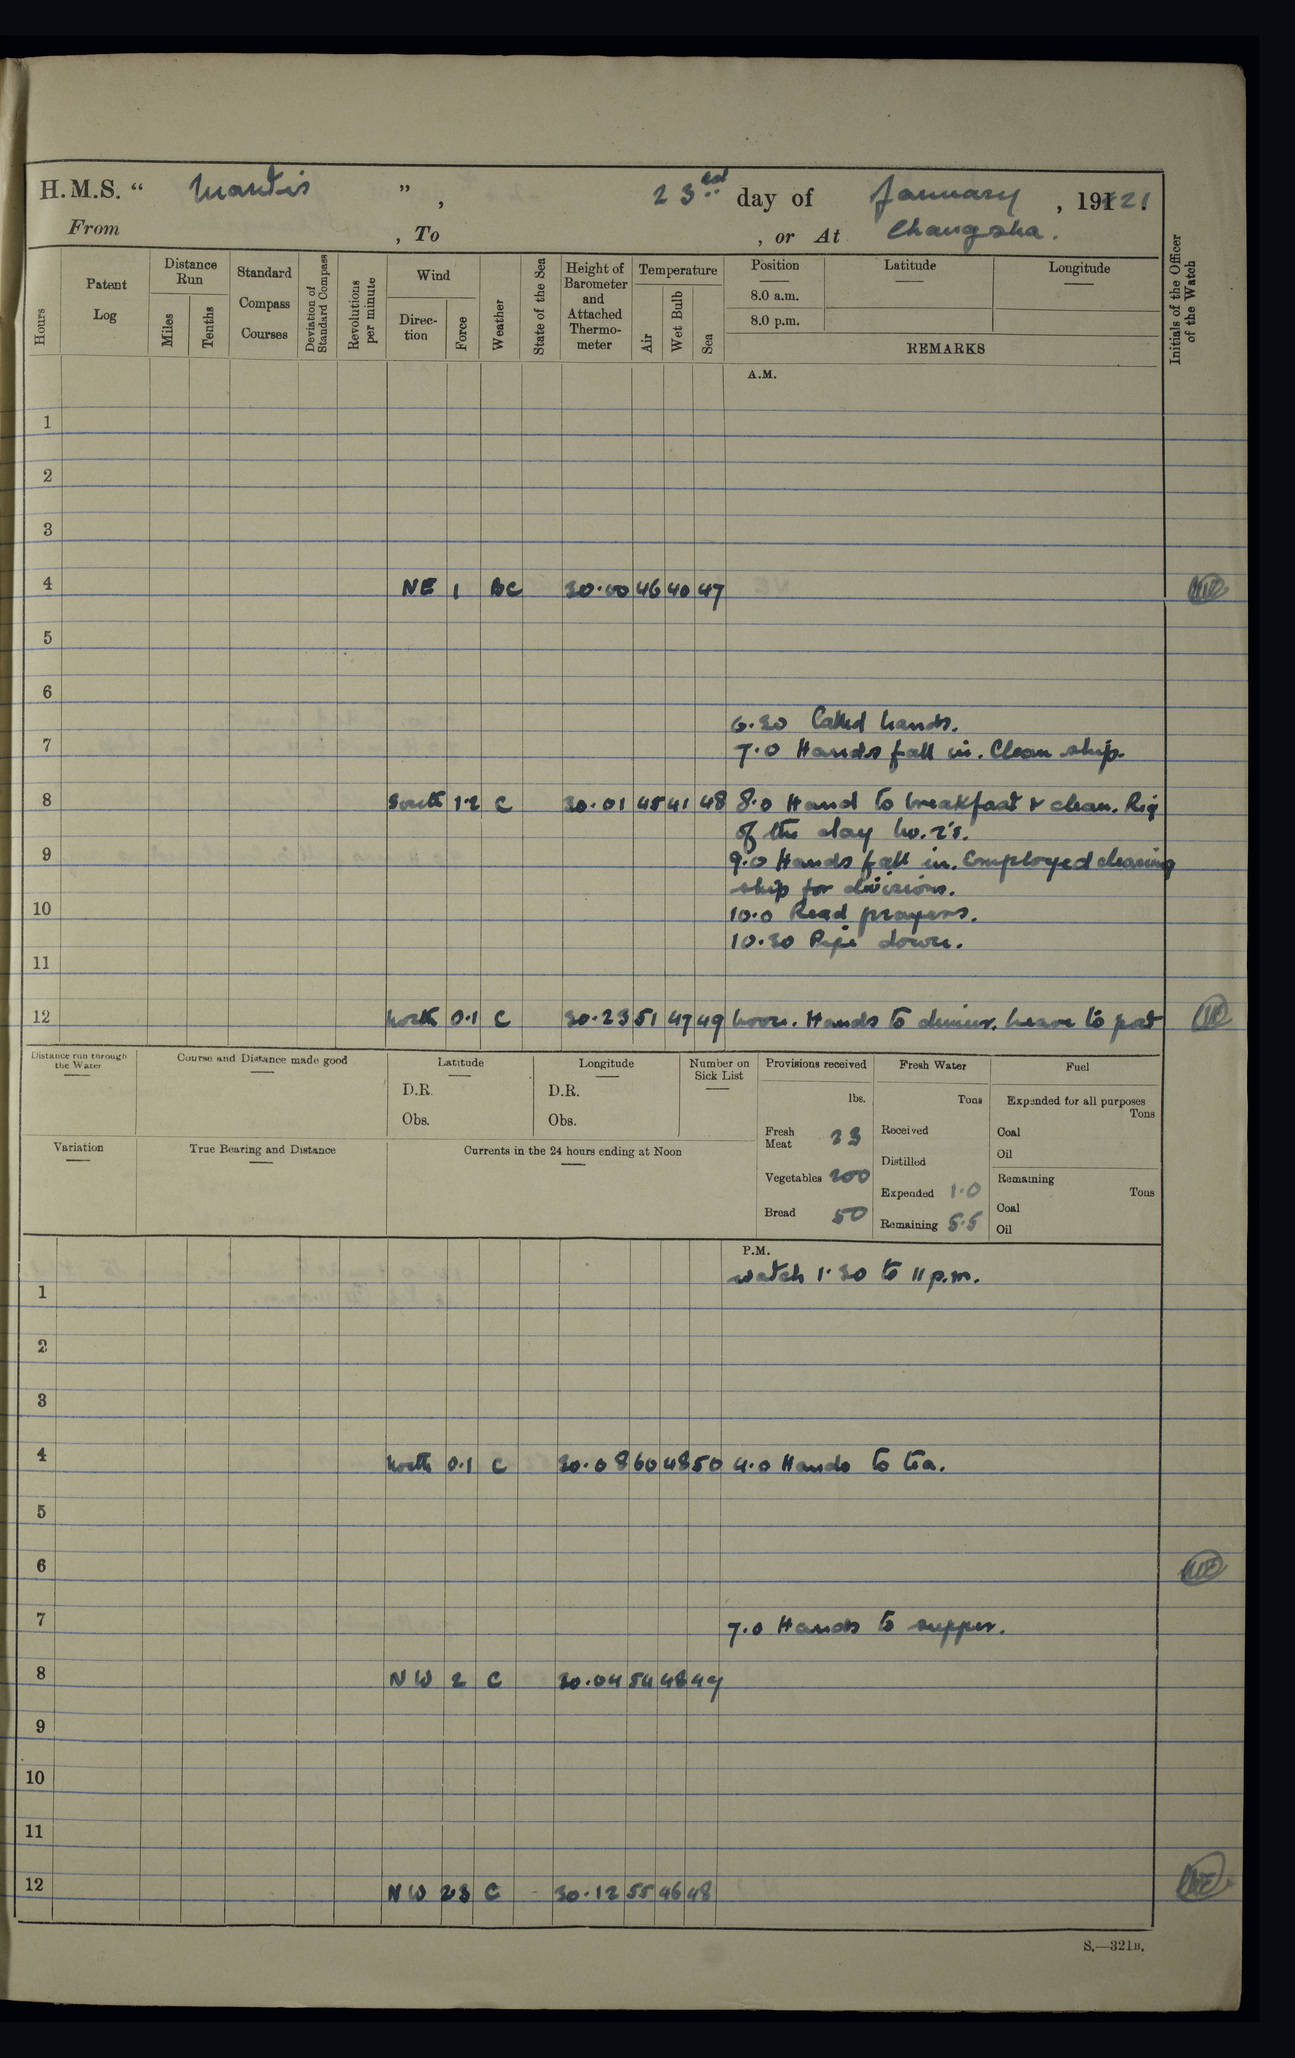 H.M.S. “ Mantis ” , 23rd day of January , 1921 .
From , To , or At Changsha.
Hours
Patent Log
Distance Run
Miles
Tenths
Standard Compass Courses
Deviation of Standard Compass
Revolutions per minute
Wind
Direction
Force
Weather
State of the Sea
Height of Barometer and Attached Thermometer
Temperature
Air
Wet Bulb
Sea
Position
8.0 a.m.
8.0 p.m.
Latitude
Longitude
REMARKS
Initials of the Officer of the Watch
A.M.
1
2
3
4 NE 1 BC 30.00 46 40 47
5
6
6.30 Called hands.
7 7.0 Hands fall in. Clean ship.
8 South 1.2 C 30.01 45 41 48 8.0 Hand to breakfast & clean. Rig
of the day No. 2's.
9 9.0 Hands fall in. Employed cleaning
ship for divisions.
10 10.0 Read prayers.
10.30 Pipe down.
11
12 North 0.1 C 30.23 51 47 49 Noon. Hands to dinner. Leave to port
Distance run through the Water
Course and Distance made good
Latitude
D.R.
Obs.
Longitude
D.R.
Obs.
Number on Sick List
Provisions received
lbs.
Fresh Meat 23
Vegetables 200
Bread 50
Fresh Water
Tons
Received
Distilled
Expended 1.0
Remaining 5.5
Fuel
Expended for all purposes
Tons
Coal
Oil
Remaining
Tons
Coal
Oil
Variation
True Bearing and Distance
Currents in the 24 hours ending at Noon
P.M.
watch 1.30 to 11 p.m.
1
2
3
4 North 0.1 C 30.08 60 48 50 4.0 Hands to tea.
5
6
7 7.0 Hands to supper.
8 NW 2 C 30.04 54 48 49
9
10
11
12 NW 2.3 C - 30.12 55 46 48
S.—321B.